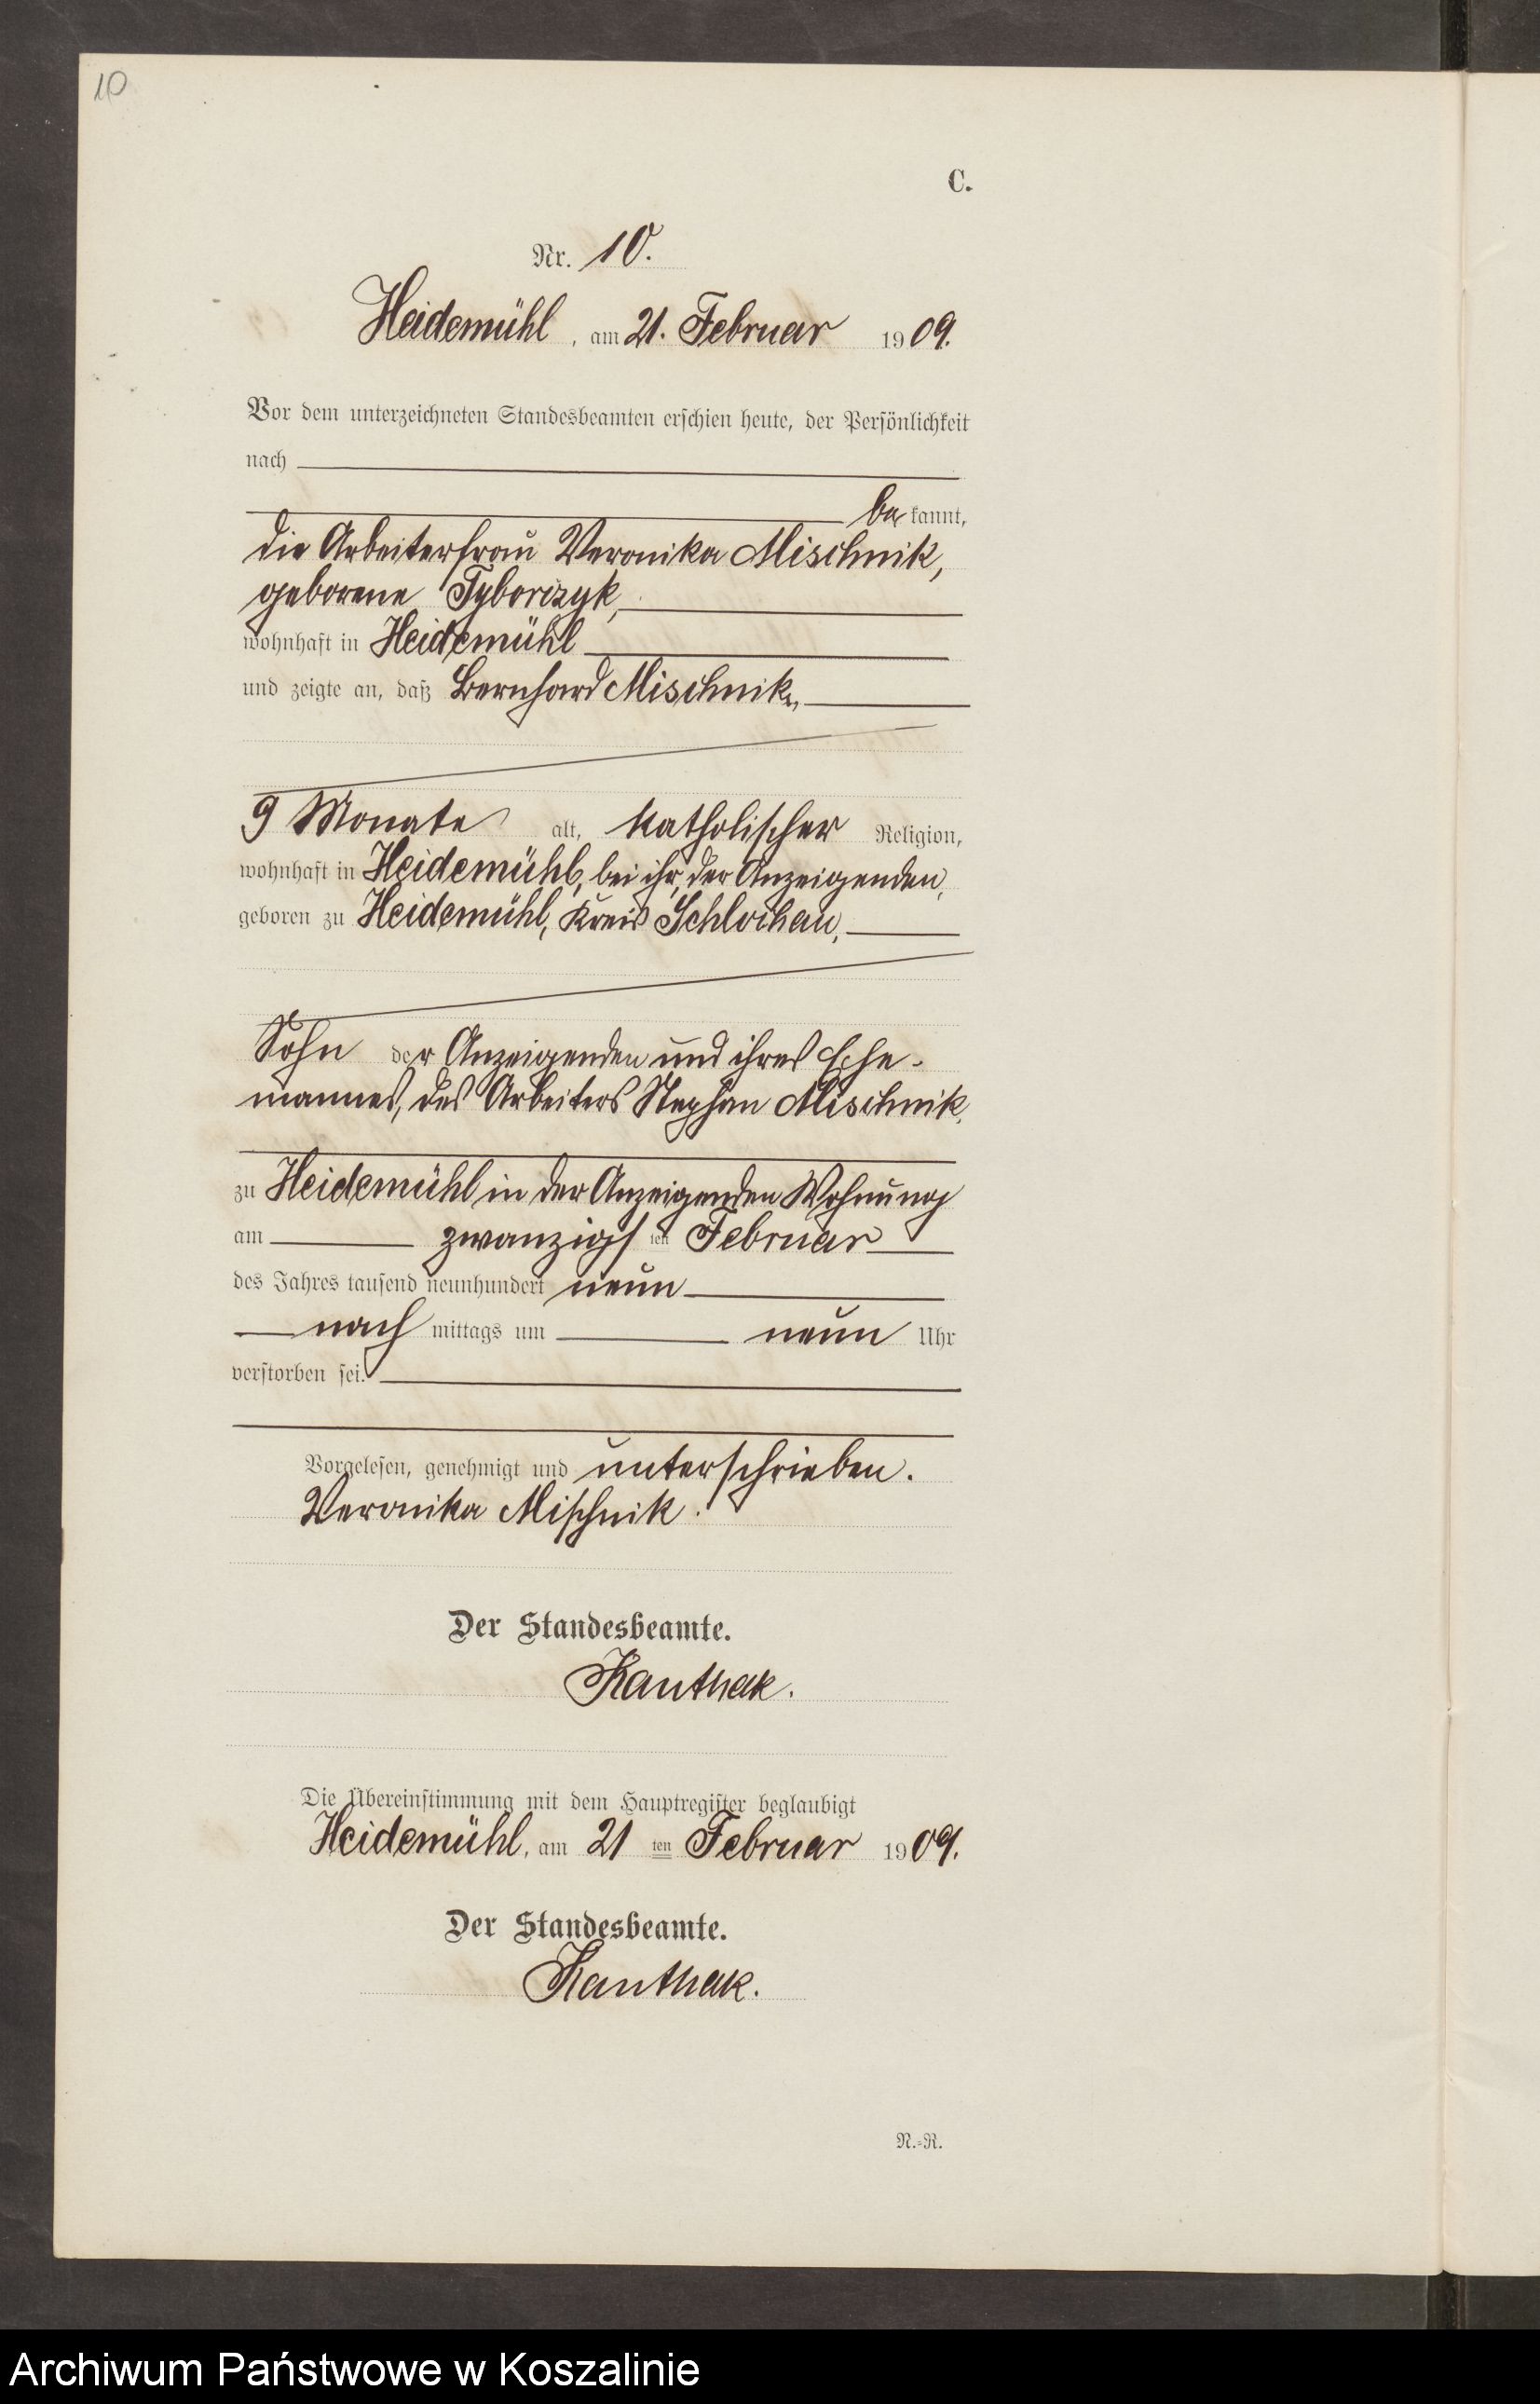 10
C.
Nr. 10.
Heidemühl, am 21. Februar 1909.
Vor dem unterzeichneten Standesbeamten erschien heute, der Persönlichkeit
nach
bekannt,
die Arbeiterfrau Veronika Mischnik,
geborene Tyborczyk,
wohnhaft in Heidemühl
und zeigte an, daß Bernhard Mischnik,
9 Monate alt, katholischer Religion,
wohnhaft in Heidemühl, bei ihr, der Anzeigenden,
geboren zu Heidemühl, Kreis Schlochau,
Sohn der Anzeigenden und ihres Ehe-
mannes, des Arbeiters Stephan Mischnik,
zu Heidemühl in der Anzeigenden Wohnung
am zwanzigsten Februar
des Jahres tausend neunhundert neun
nachmittags um neun Uhr
verstorben sei.
Vorgelesen, genehmigt und unterschrieben.
Veronika Mischnik.
Der Standesbeamte.
Kanthak.
Die Übereinstimmung mit dem Hauptregister beglaubigt
Heidemühl, am 21ten Februar 1909.
Der Standesbeamte.
Kanthak.
N.-R.
Archiwum Państwowe w Koszalinie